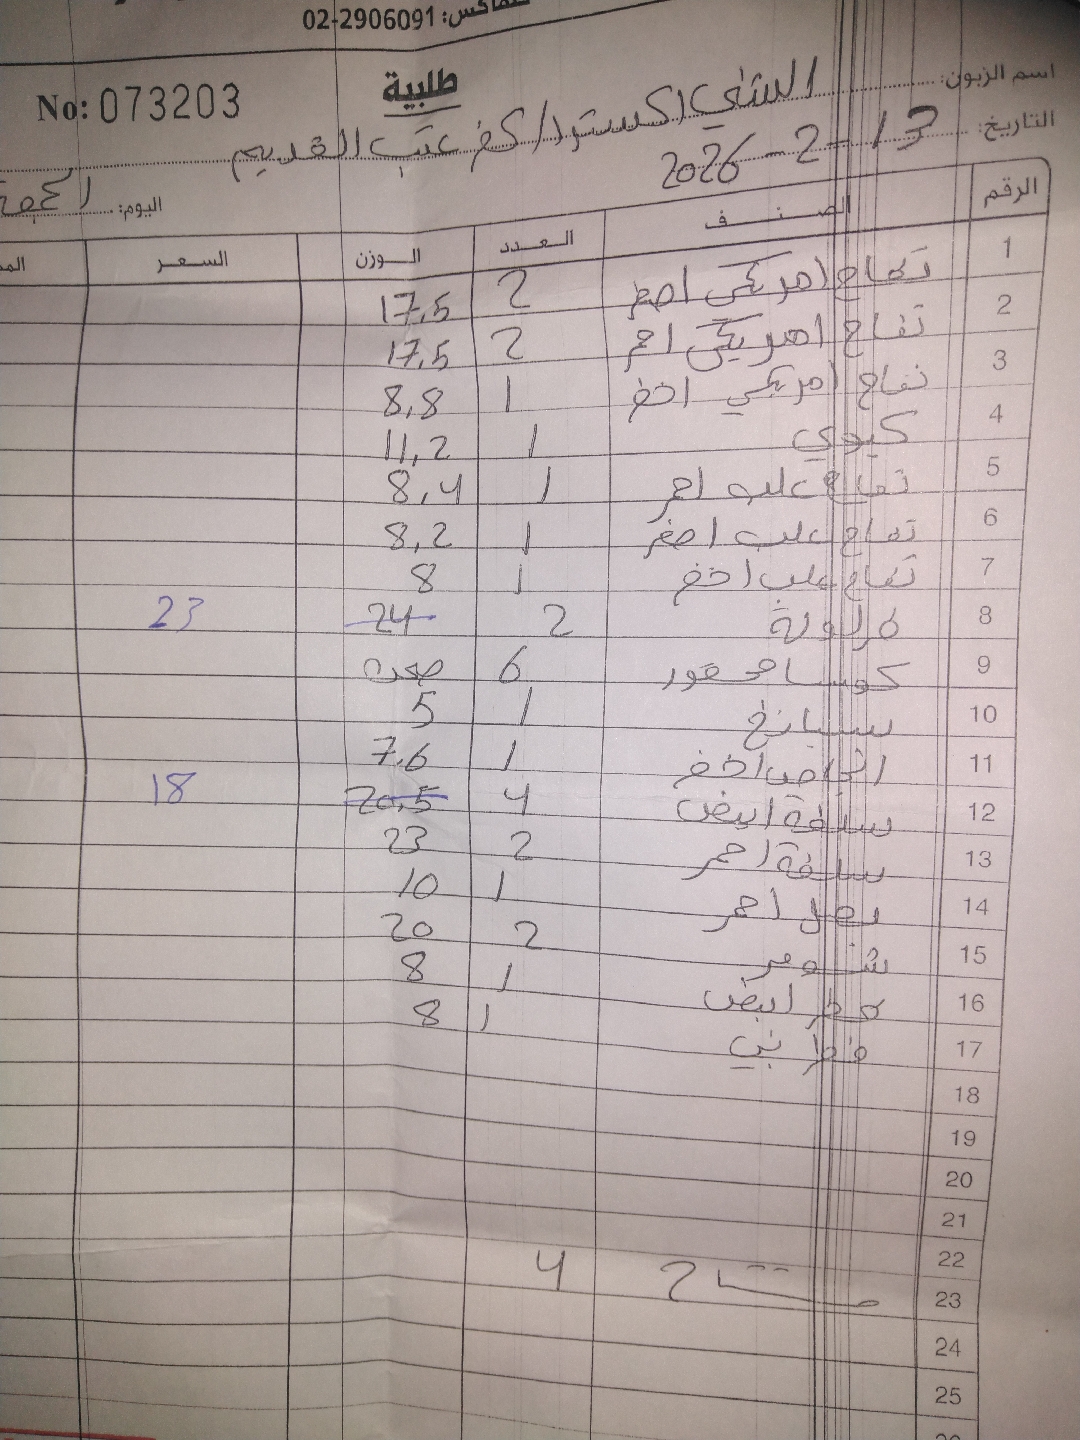 تلفاكس: 02-2906091
No: 073203
طلبية
اسم الزبون: الشني اكسترا/كفر عقب القديم
التاريخ: 13-2-2026
اليوم: الجمعة
الرقم الصنف العدد الوزن السعر
1 تفاح امريكي اصفر 2 17,5
2 تفاح امريكي احمر 2 17,5
3 تفاح امريكي اخضر 1 8,8
4 كيوي 1 11,2
5 تفاح علب احمر 1 8,4
6 تفاح علب اصفر 1 8,2
7 تفاح علب اخضر 1 8
8 فراولة 2 24 23
9 كوسا محفور 6 صحن
10 سبانخ 1 5
11 انجاص اخضر 1 7.6
12 سلفة ابيض 4 20,5 18
13 سلفة احمر 2 23
14 بصل احمر 1 10
15 شومر 2 20
16 فطر ابيض 1 8
17 فطر بني 1 8
18
19
20
21
22
23 مشتاح 4
24
25